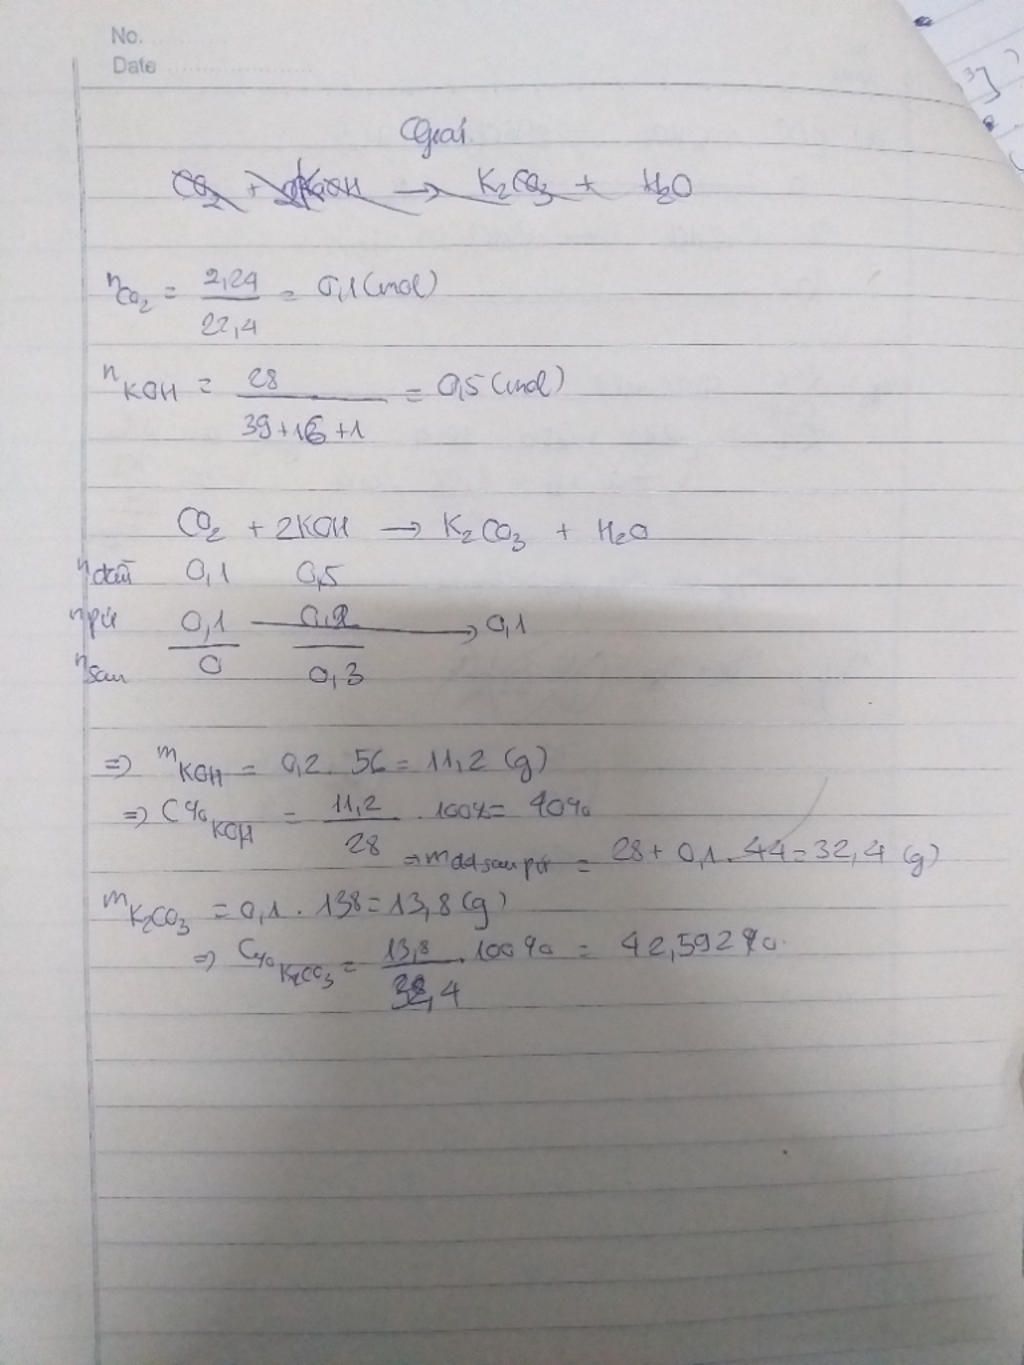 No.
Date
Giải
CO2 + 2KOH → K2CO3 + H2O
nCO2 = 2,24 / 22,4 = 0,1 (mol)
nKOH = 28 / 39+16+1 = 0,5 (mol)
CO2 + 2KOH → K2CO3 + H2O
nđầu 0,1 0,5
npứ 0,1 0,2 → 0,1
nsau 0 0,3
=> mKOH = 0,2 . 56 = 11,2 (g)
=> C%KOH = 11,2 / 28 . 100% = 40%
=> mdd sau pứ = 28 + 0,1 . 44 = 32,4 (g)
mK2CO3 = 0,1 . 138 = 13,8 (g)
=> C%K2CO3 = 13,8 / 32,4 . 100% = 42,592%.